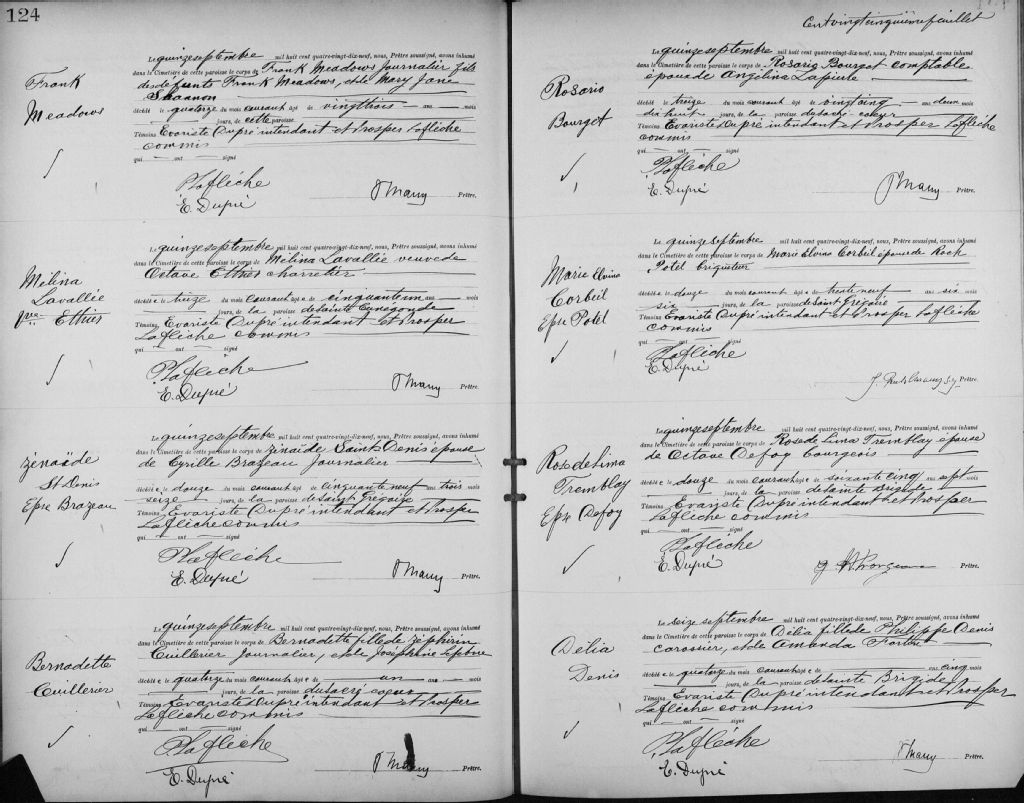 124
Frank
Meadows
Le quinze septembre mil huit cent quatre-vingt-dix-neuf, nous, Prêtre soussigné, avons inhumé
dans le Cimetière de cette paroisse le corps de Frank Meadows Journalier fils
des défunts Frank Meadows, et de Mary Jane
Shannon
décédé le quatorze du mois courant âgé de vingt trois ans mois
jours, de cette paroisse.
Témoins Evariste Dupré intendant et Prosper Laflèche
commis
qui ont signé
P Laflèche
E. Dupré
Prêtre.
Mélina
Lavallée
Vve Ethier
Le quinze septembre mil huit cent quatre-vingt-dix-neuf, nous, Prêtre soussigné, avons inhumé
dans le Cimetière de cette paroisse le corps de Mélina Lavallée veuve de
Octave Ethier charretier
décédée le treize du mois courant âgée de cinquante un ans mois
jours, de la paroisse de Sainte Cunégonde
Témoins Evariste Dupré intendant et Prosper
Laflèche commis
qui ont signé
P Laflèche
E. Dupré
Prêtre.
Zénaïde
St Denis
Epse Brazeau
Le quinze septembre mil huit cent quatre-vingt-dix-neuf, nous, Prêtre soussigné, avons inhumé
dans le Cimetière de cette paroisse le corps de Zénaïde Saint Denis épouse
de Cyrille Brazeau Journalier
décédée le douze du mois courant âgée de cinquante neuf ans trois mois
seize jours, de la paroisse de Saint Grégoire
Témoins Evariste Dupré intendant et Prosper
Laflèche commis
qui ont signé
P Laflèche
E. Dupré
Prêtre.
Bernadette
Cuillerier
Le quinze septembre mil huit cent quatre-vingt-dix-neuf, nous, Prêtre soussigné, avons inhumé
dans le Cimetière de cette paroisse le corps de Bernadette fille de Zéphirin
Cuillerier Journalier, et de Joséphine Lefebvre
décédée le quatorze du mois courant âgée de un an mois
jours, de la paroisse du Sacré coeur
Témoins Evariste Dupré intendant et Prosper
Laflèche commis
qui ont signé
P Laflèche
E. Dupré
Prêtre.
Cent vingt cinquième feuillet
Rosario
Bourget
Le quinze septembre mil huit cent quatre-vingt-dix-neuf, nous, Prêtre soussigné, avons inhumé
dans le Cimetière de cette paroisse le corps de Rosario Bourget comptable
époux de Angélina Lapierre
décédé le treize du mois courant âgé de vingt cinq ans deux mois
dix huit jours, de la paroisse du Sacré coeur
Témoins Evariste Dupré intendant et Prosper Laflèche
commis
qui ont signé
P Laflèche
E. Dupré
Prêtre.
Marie Elvina
Corbeil
Epse Potel
Le quinze septembre mil huit cent quatre-vingt-dix-neuf, nous, Prêtre soussigné, avons inhumé
dans le Cimetière de cette paroisse le corps de Marie Elvina Corbeil épouse de Rock
Potel briqueteur
décédée le douze du mois courant âgée de trente neuf ans six mois
six jours, de la paroisse de Saint Grégoire
Témoins Evariste Dupré intendant et Prosper Laflèche
commis
qui ont signé
P Laflèche
E. Dupré
Prêtre.
Rose de Lima
Tremblay
Epse Defoy
Le quinze septembre mil huit cent quatre-vingt-dix-neuf, nous, Prêtre soussigné, avons inhumé
dans le Cimetière de cette paroisse le corps de Rose de Lima Tremblay épouse
de Octave Defoy bourgeois
décédée le douze du mois courant âgée de soixante cinq ans sept mois
jours, de la paroisse de Sainte Brigide
Témoins Evariste Dupré intendant et Prosper
Laflèche commis
qui ont signé
P Laflèche
E. Dupré
Prêtre.
Délia
Denis
Le seize septembre mil huit cent quatre-vingt-dix-neuf, nous, Prêtre soussigné, avons inhumé
dans le Cimetière de cette paroisse le corps de Délia fille de Philippe Denis
carossier, et de Amanda Fortin
décédée le quatorze du mois courant âgée de ans cinq mois
jours, de la paroisse de Sainte Brigide
Témoins Evariste Dupré intendant et Prosper
Laflèche commis
qui ont signé
P Laflèche
E. Dupré
Prêtre.